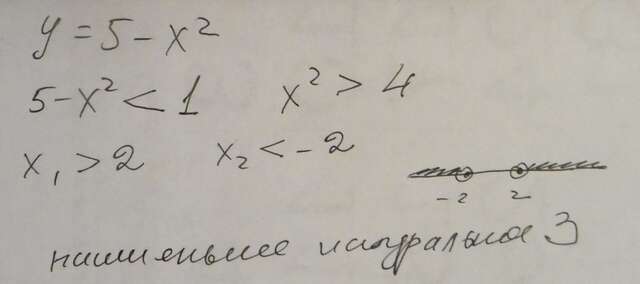 y = 5 - x²
5 - x² < 1 x² > 4
x₁ > 2 x₂ < -2
-2 2
наименьшее натуральное 3